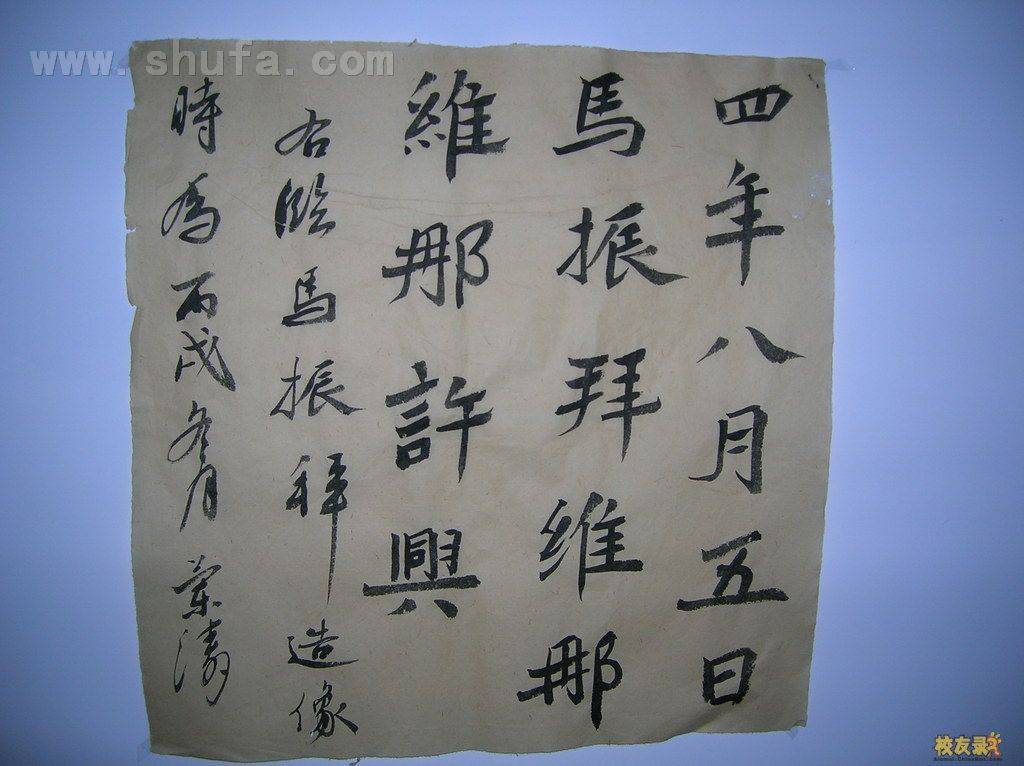 www.shufa.com
四年八月五日
馬振拜维那
維那許興
右臨馬振拜造像
時為丙戌冬月 荣濤
校友录